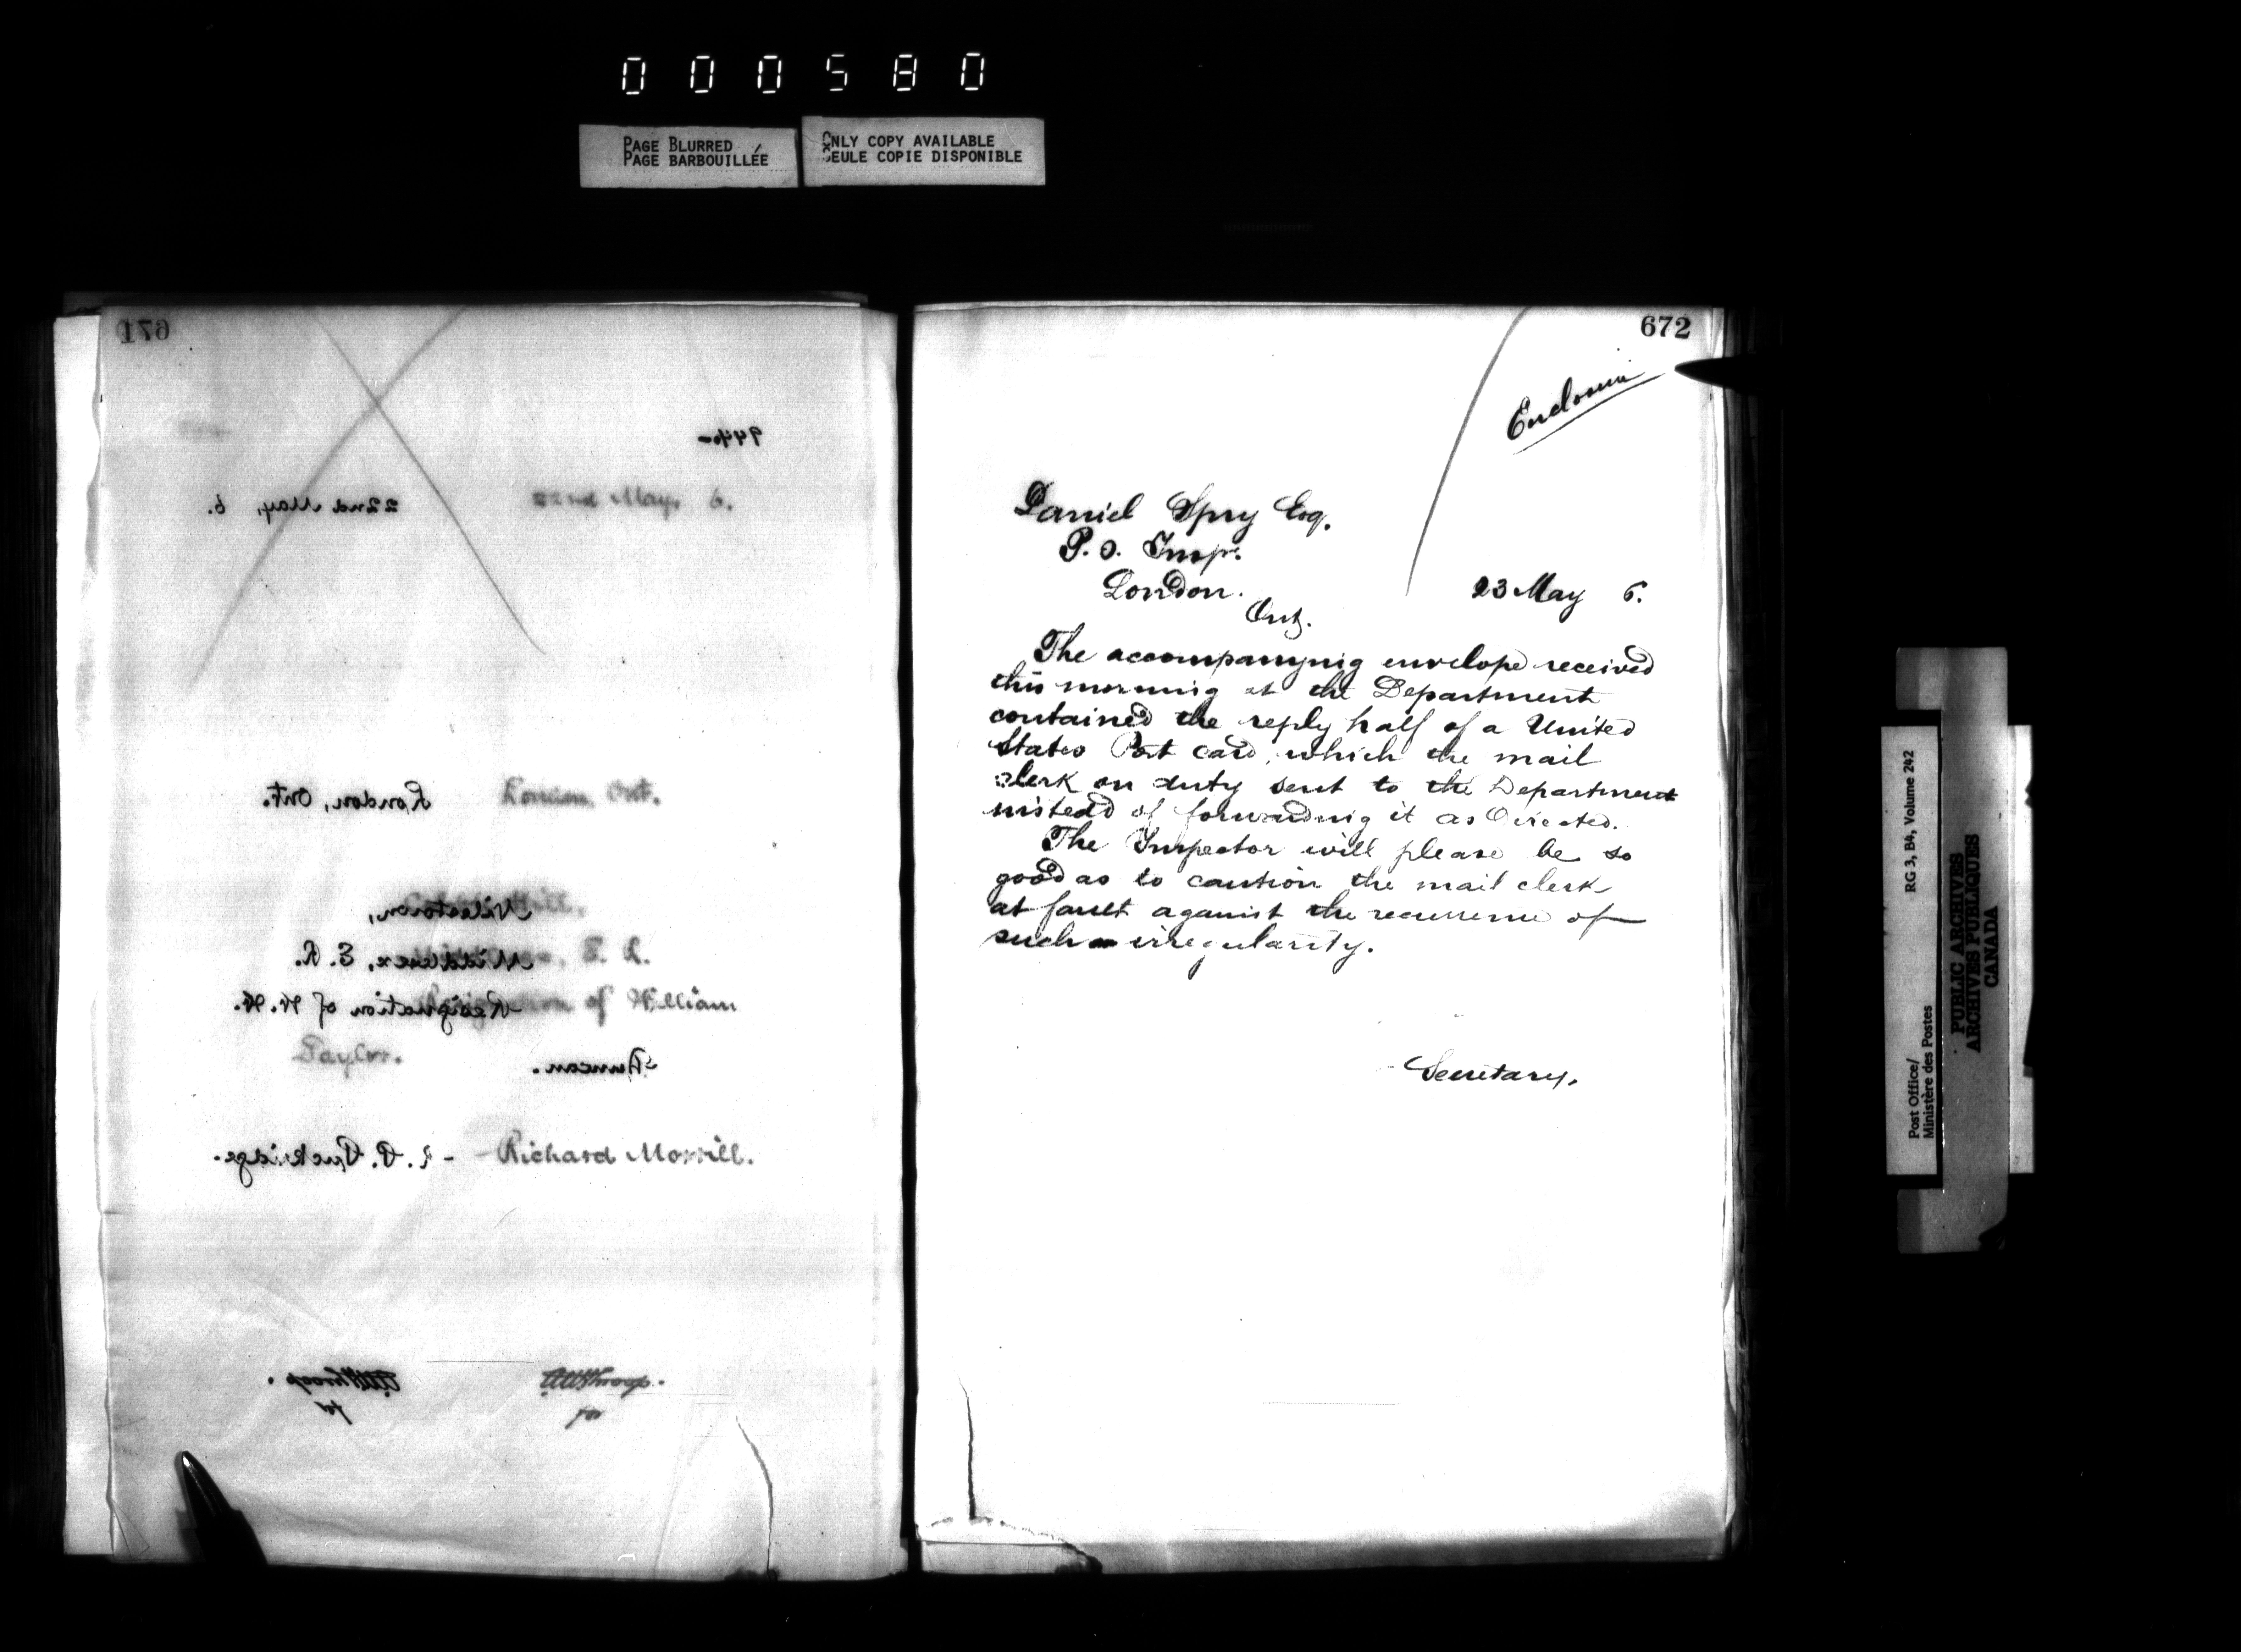 000580
PAGE BLURRED
PAGE BARBOUILLÉE
ONLY COPY AVAILABLE
SEULE COPIE DISPONIBLE
671
944
22nd May, 6.
22nd May, 6.
London, Ont.
London, Ont.
Nilestown,
Hill,
Middlesex, E. R.
E. R.
Resignation of H. H.
of William
Duncan.
Taylor.
Richard Morrill.
for
for
672
Enclosure
Daniel Spry Esq.
P. O. Inspr.
London.
Ont.
23 May 6.
The accompanying envelope received
this morning at the Department
contained the reply half of a United
States Post card, which the mail
clerk on duty sent to the Department
instead of forwarding it as directed.
The Inspector will please be so
good as to caution the mail clerk
at fault against the recurrence of
such irregularity.
Secretary.
RG 3, B4, Volume 242
Post Office/
Ministère des Postes
PUBLIC ARCHIVES
ARCHIVES PUBLIQUES
CANADA